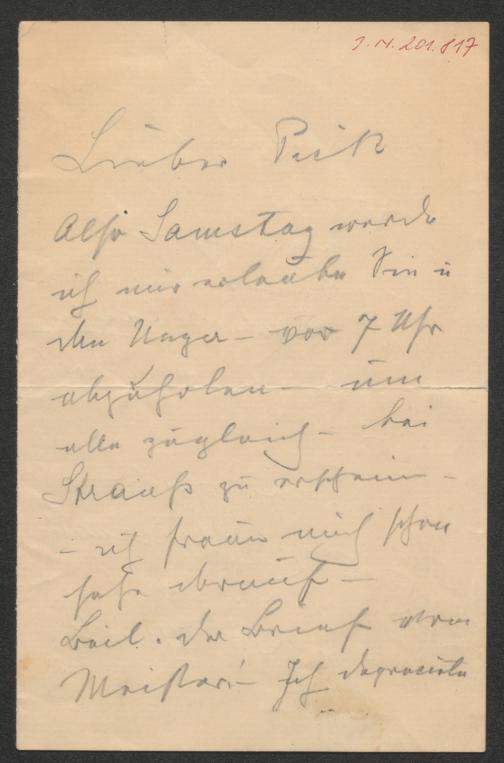 J. N. 201.817
Lieber Pick
Also Samstag werde
ich mir erlauben Sie u
den Unger – vor 7 Uhr
abzuholen – um
alle zugleich – bei
Strauß zu erschein –
– ich freue mich schon
sehr darauf –
Beil. der Brief vom
Meister! – Ich